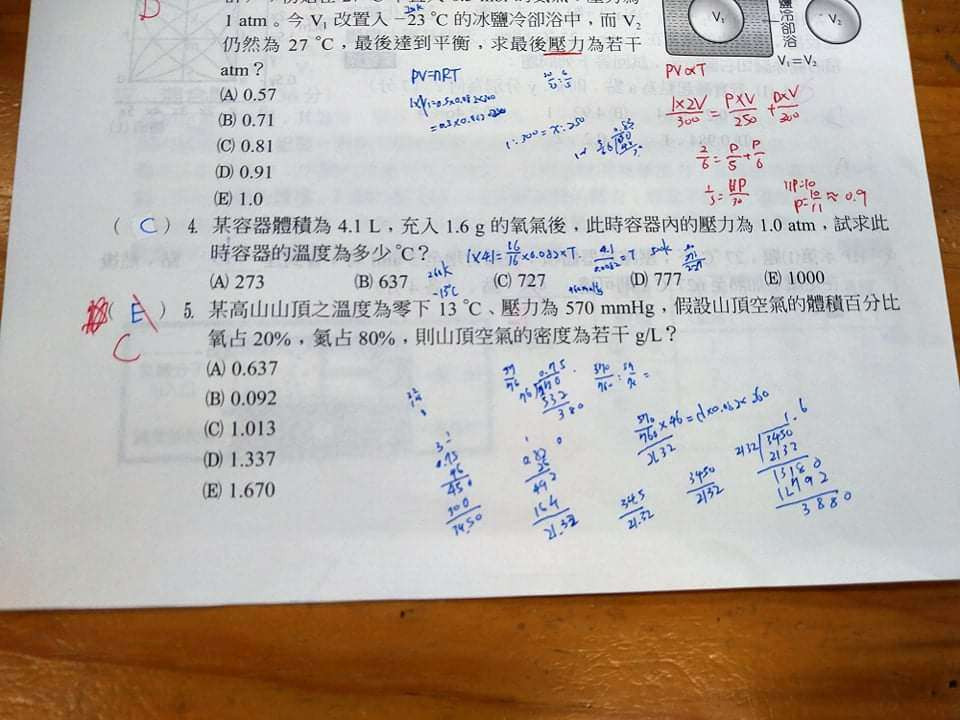 D
1 atm。今 V₁ 改置入 −23 ℃ 的冰鹽冷卻浴中，而 V₂
仍然為 27 ℃，最後達到平衡，求最後壓力為若干
atm？
(A) 0.57
(B) 0.71
(C) 0.81
(D) 0.91
(E) 1.0
V₁
鹽冷卻浴
V₂
V₁=V₂
PV=nRT
1:300=x:250
PV∝T
1×2V/300 = P×V/250 + P×V/300
2/6 = P/5 + P/6
1/3 = 11P/30
11P=10
P=10/11≈0.9
( C ) 4. 某容器體積為 4.1 L，充入 1.6 g 的氧氣後，此時容器內的壓力為 1.0 atm，試求此
時容器的溫度為多少℃？
(A) 273 (B) 637 (C) 727 (D) 777 (E) 1000
260k
-13℃
( E ) 5. 某高山山頂之溫度為零下 13 ℃、壓力為 570 mmHg，假設山頂空氣的體積百分比
C
氧占 20%，氮占 80%，則山頂空氣的密度為若干 g/L？
(A) 0.637
(B) 0.092
(C) 1.013
(D) 1.337
(E) 1.670
570/760 ×46=d×0.082×260
0.75
46
450
300
3450
164
21.32
345/21.32
3450/2132
1.6
2132 3450
2132
13180
12792
3880